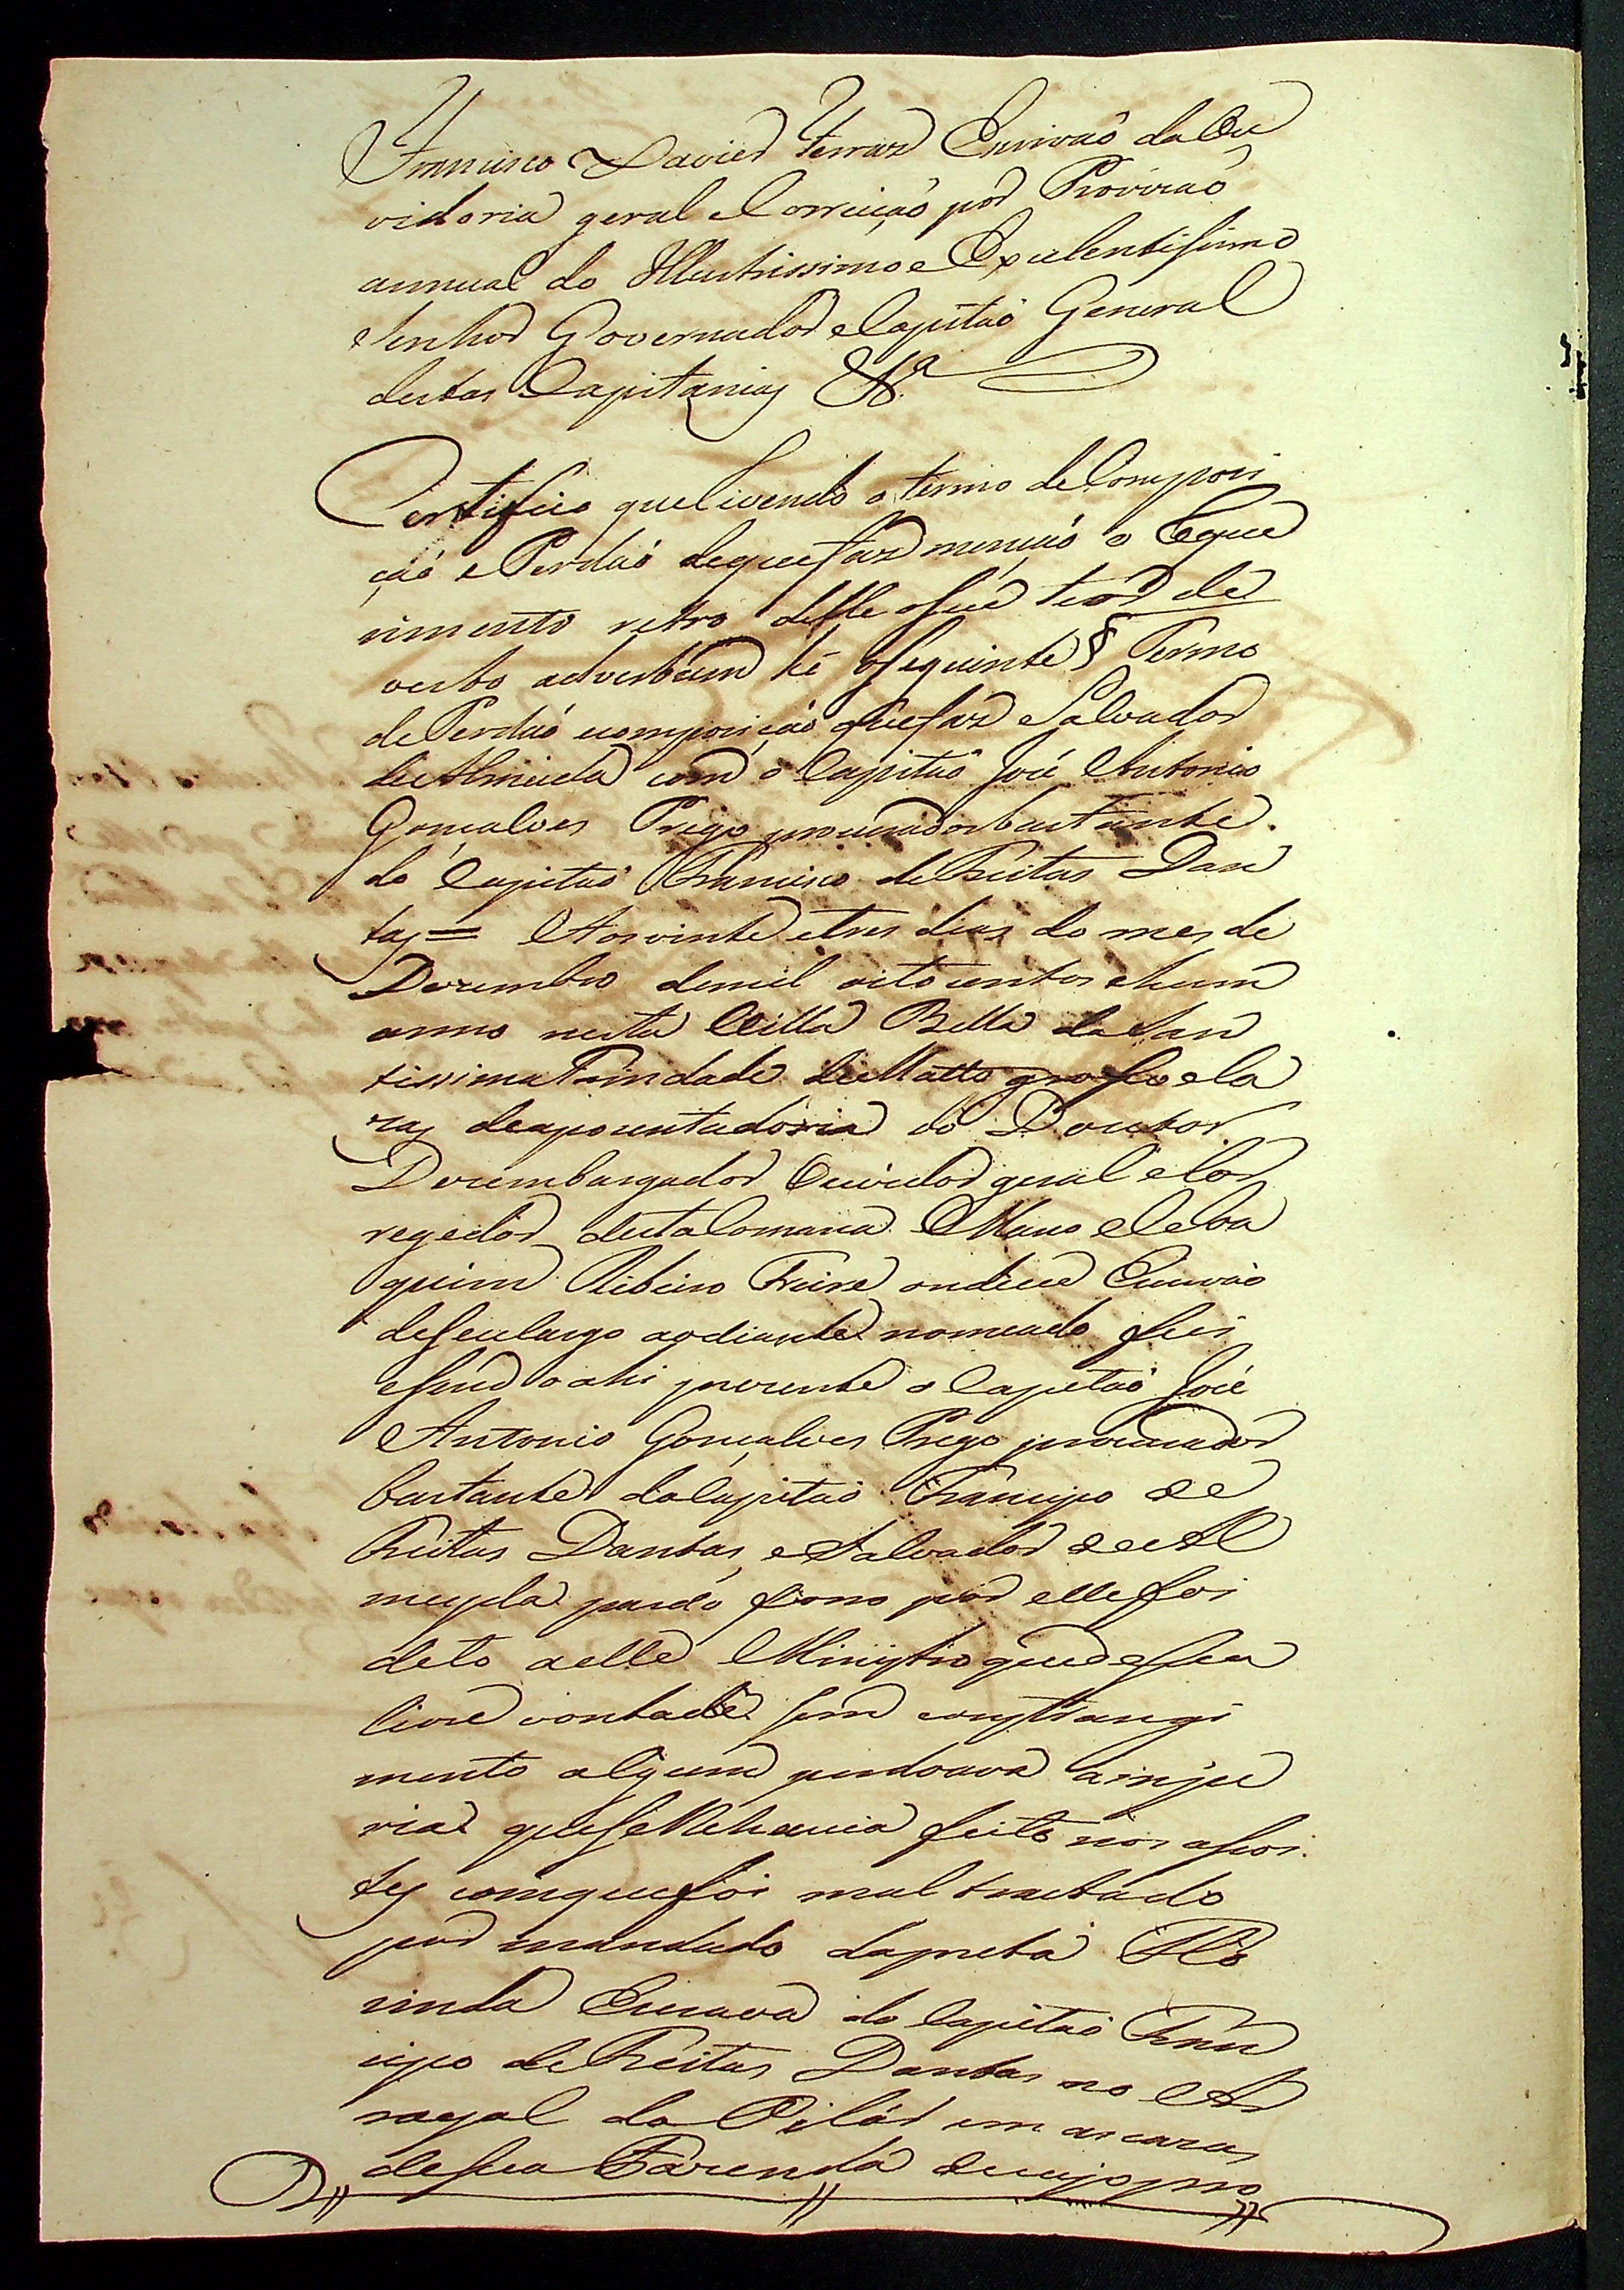 Francisco Xavier Ferraz Escrivaõ da Ou
vidoria geral e Correiçaõ por Provizaõ
annual do Illustrissimo e Excelentissimo
Senhor Governador e Capitaõ General
destas Capitanias &ª
Certifico que revendo o termo de Compozi
çaõ e Perdaõ de que faz mençaõ o Reque
rimento retro delle o seu teor de
verbo adverbum hé o seguinte § Termo
de Perdaõ e compoziçaõ que faz Salvador
de Almeida com o Capitaõ Joze Antonio
Gonçalves Prego procurador bastante
do Capitaõ Francisco de Freitas Dan
tas = Aos vinte e tres dias do mes de
Dezembro de mil oito centos e hum
anno nesta Villa Bella da San
tissima Trindade do Matto grosso e ca
zas de apozentadoria do Doutor
Dezembargador Ouvidor geral e Cor
regedor desta Comarca Mano el Joa
quim Ribeiro Freire onde eu Escrivaõ
de seu cargo ao diante nomeado fui
e sendo ahi prezente o Capitaõ Joze
Antonio Gonçalves Prego procurador
bastante do Capitaõ Francisco de
Freitas Dantas, e Salvador de Al
meyda pardo forro por elle foi
dito a elle Ministro que de sua
livre vontade sem constrangi
mento algum perdoava a inju
ria que se lhe havia feito nos asoi
tes com que foi mal tractado
por mandado da preta Flo
rinda Escrava do Capitaõ Fran
cisco de Freitas Dantas no Ar
rayal do Pilar em as cazas
de sua Fazenda de cujo pro